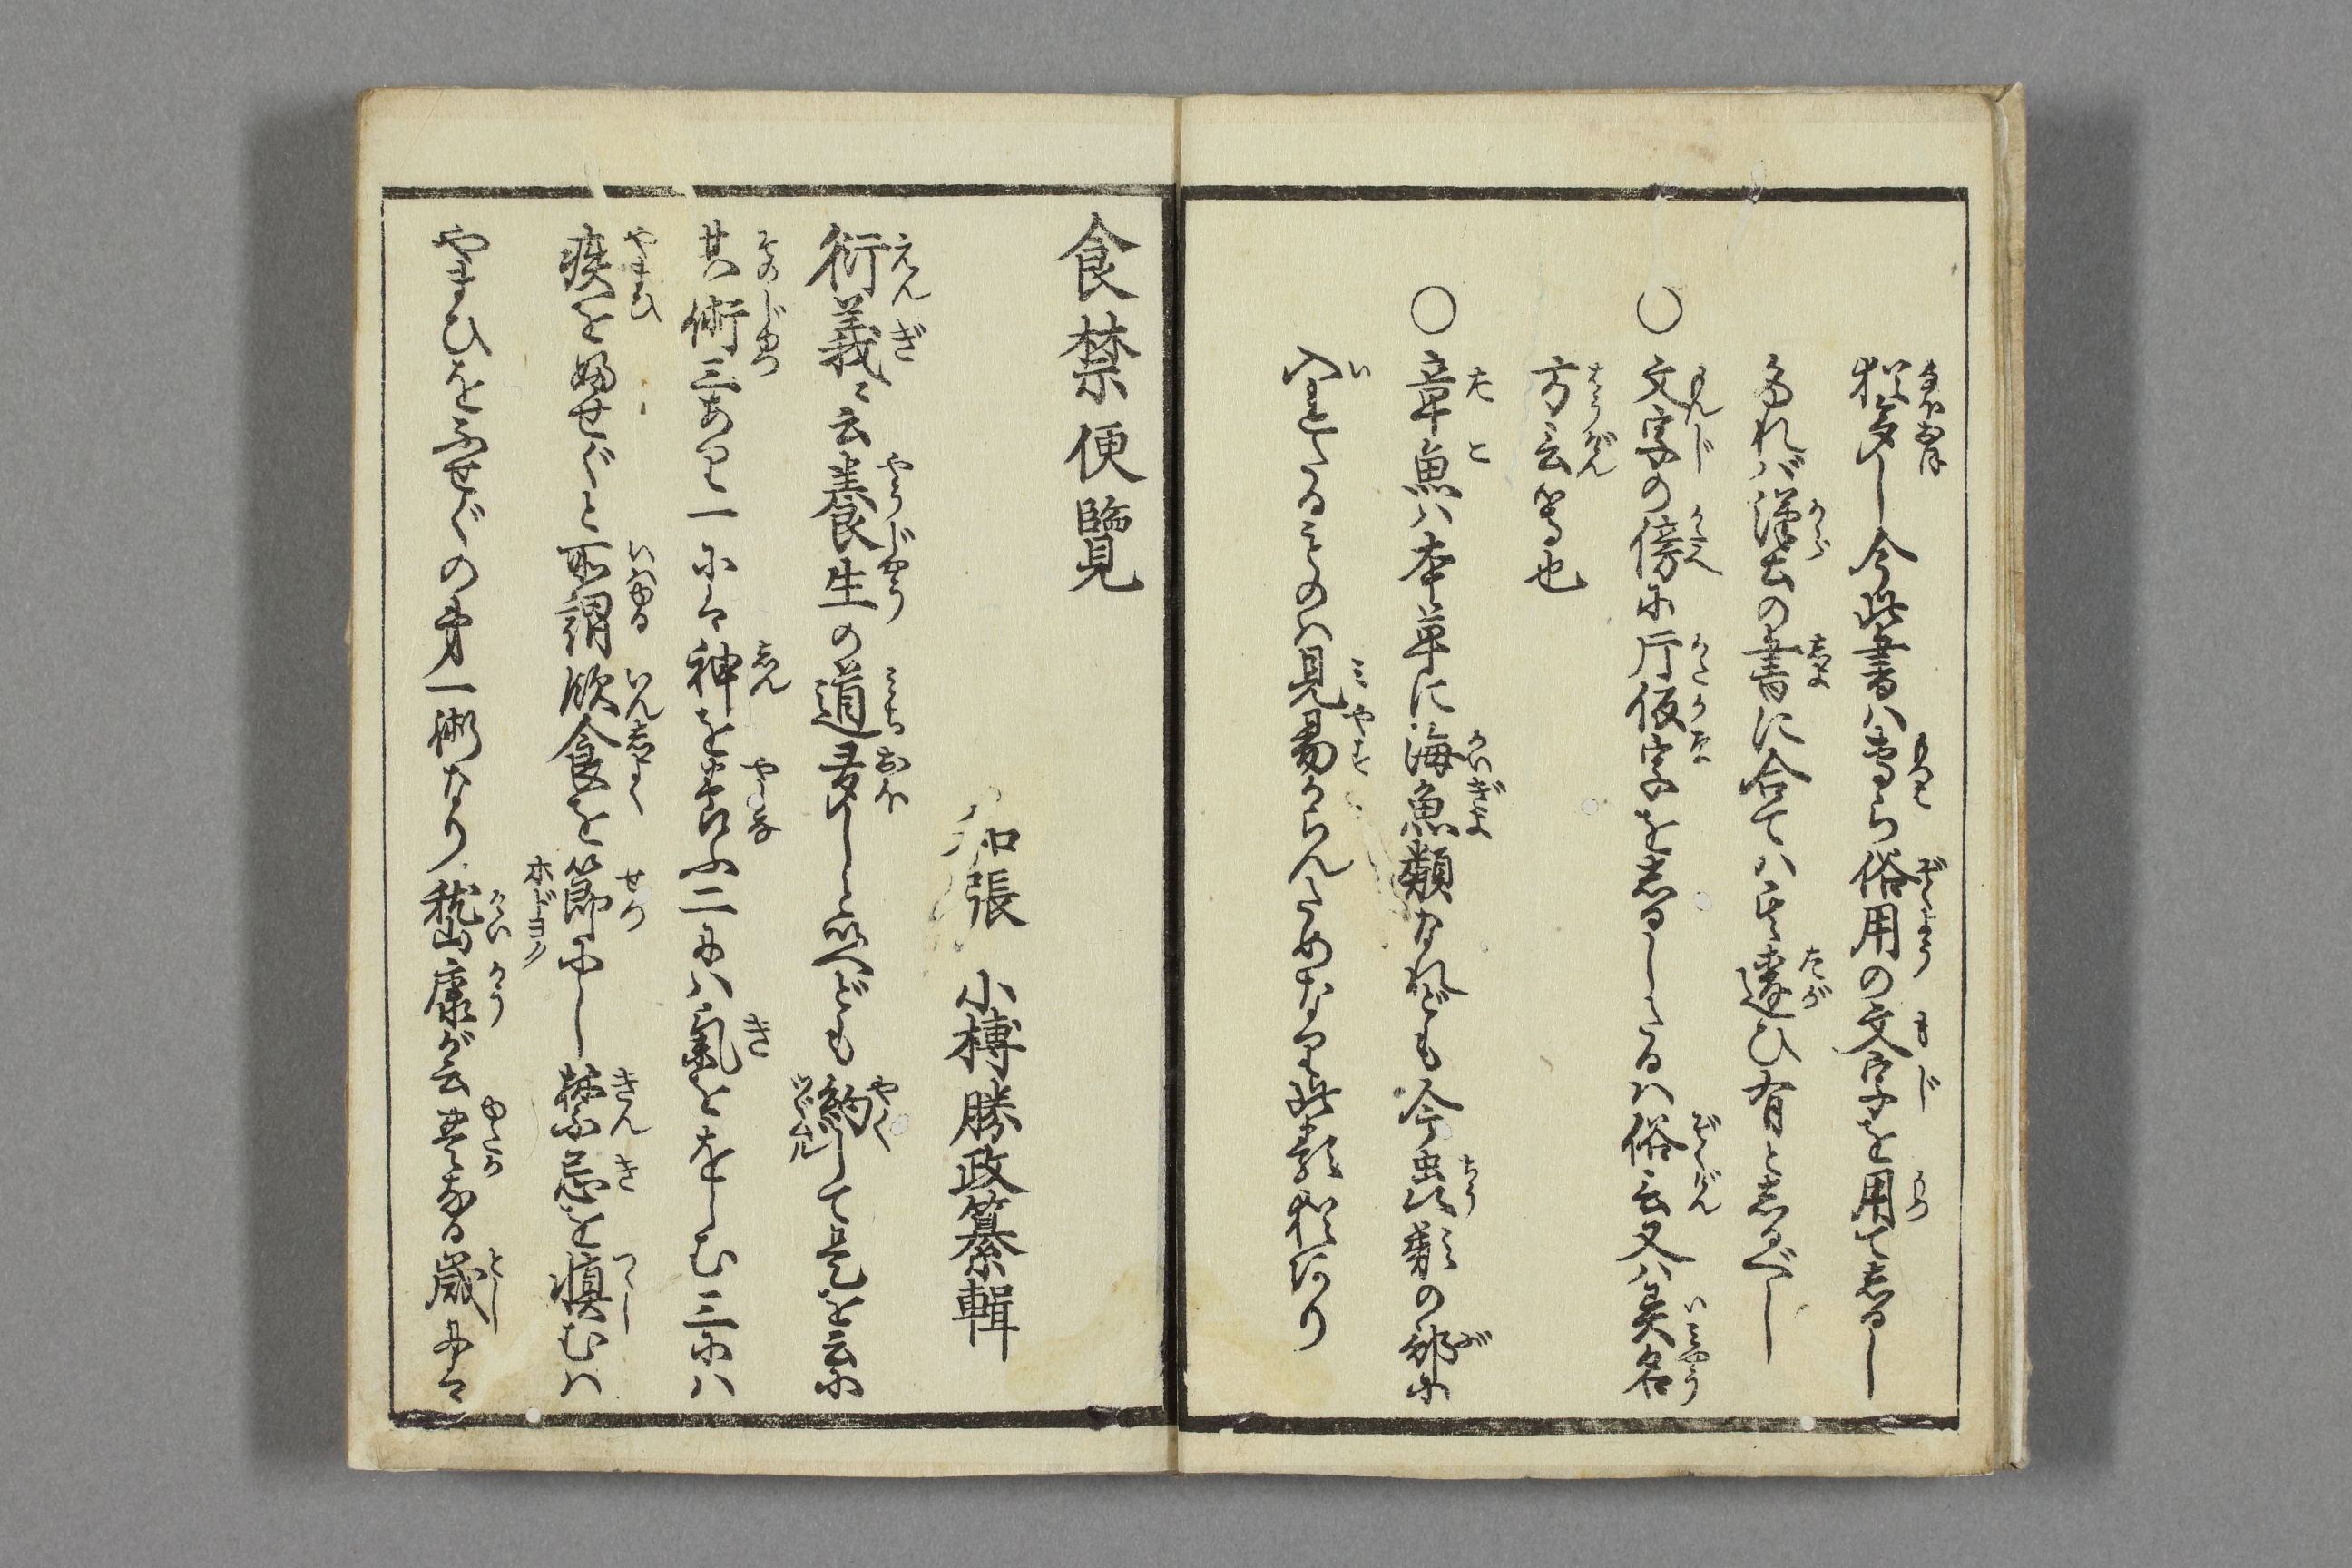 猶多し今此書ハ専ら俗用の文字を用てしるし
多れバ漢土の書に合てハ甚違ひ有としるべし
○文字の傍に片仮字をしるしたるハ俗言又ハ異名
方言等也
○章魚ハ本草に海魚類なれども今虫類の部に
入またるものハ見易からんためなり此類猶あり
食禁便覧
小槫勝政纂輯
衍義ニ云養生の道多しと云へども約して是を云に
其術三あり一には神を養ふ二にハ氣ををしむ三にハ
疾をふせぐと所謂飲食を節にし禁忌を慎むハ
やまひをふせぐの第一術なり嵆康が云豊なる歳には